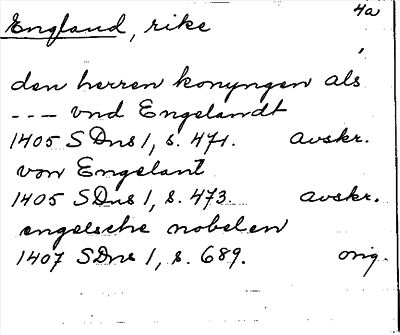 4a
England, rike
den herren konyngen als
--- vnd Engelandt
1405 SDns 1, s. 471. avskr.
von Engelant
1405 SDns 1, s. 473. avskr.
engelsche nobelen
1407 SDns 1, s. 689. orig.